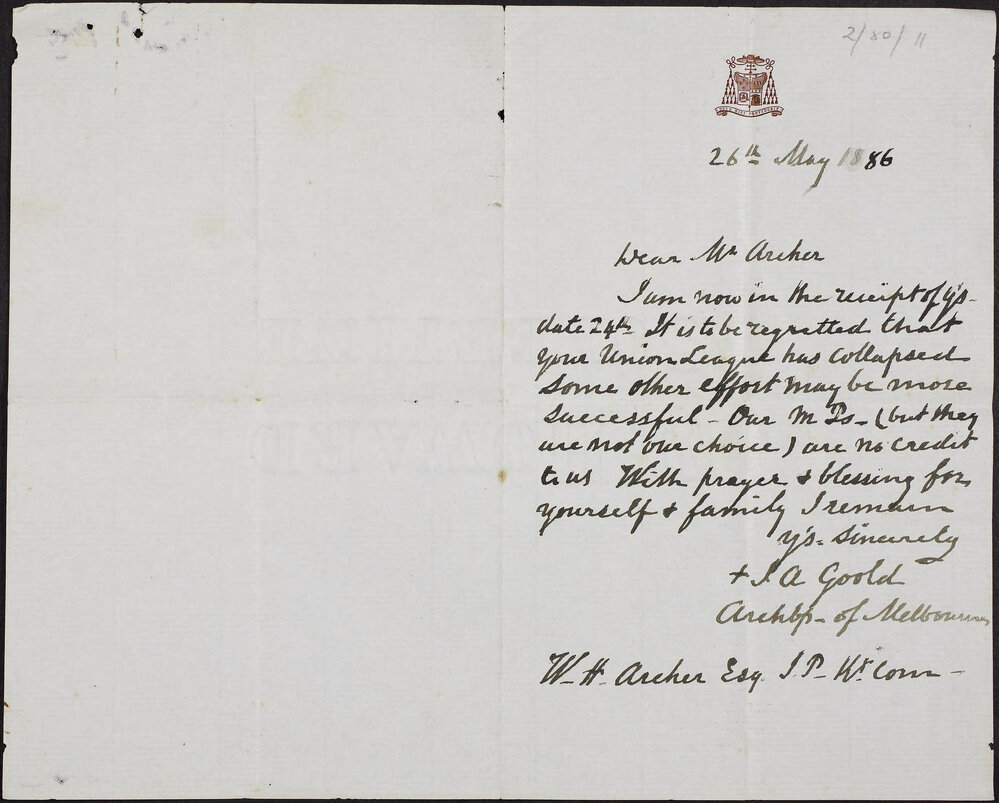 2/80/11
26th May 1886
Dear Mr Archer
I am now in the receipt of y's-
date 24th It is to be regretted that
your Union League has collapsed
Some other effort may be more
successful - Our M Ps - (but they
are not our choice) are no credit
to us With prayer & blessing for
yourself & family I remain
y's. Sincerely
+ J A Goold
Archbp - of Melbourne
W. H. Archer Esq J. P - Kt Com -